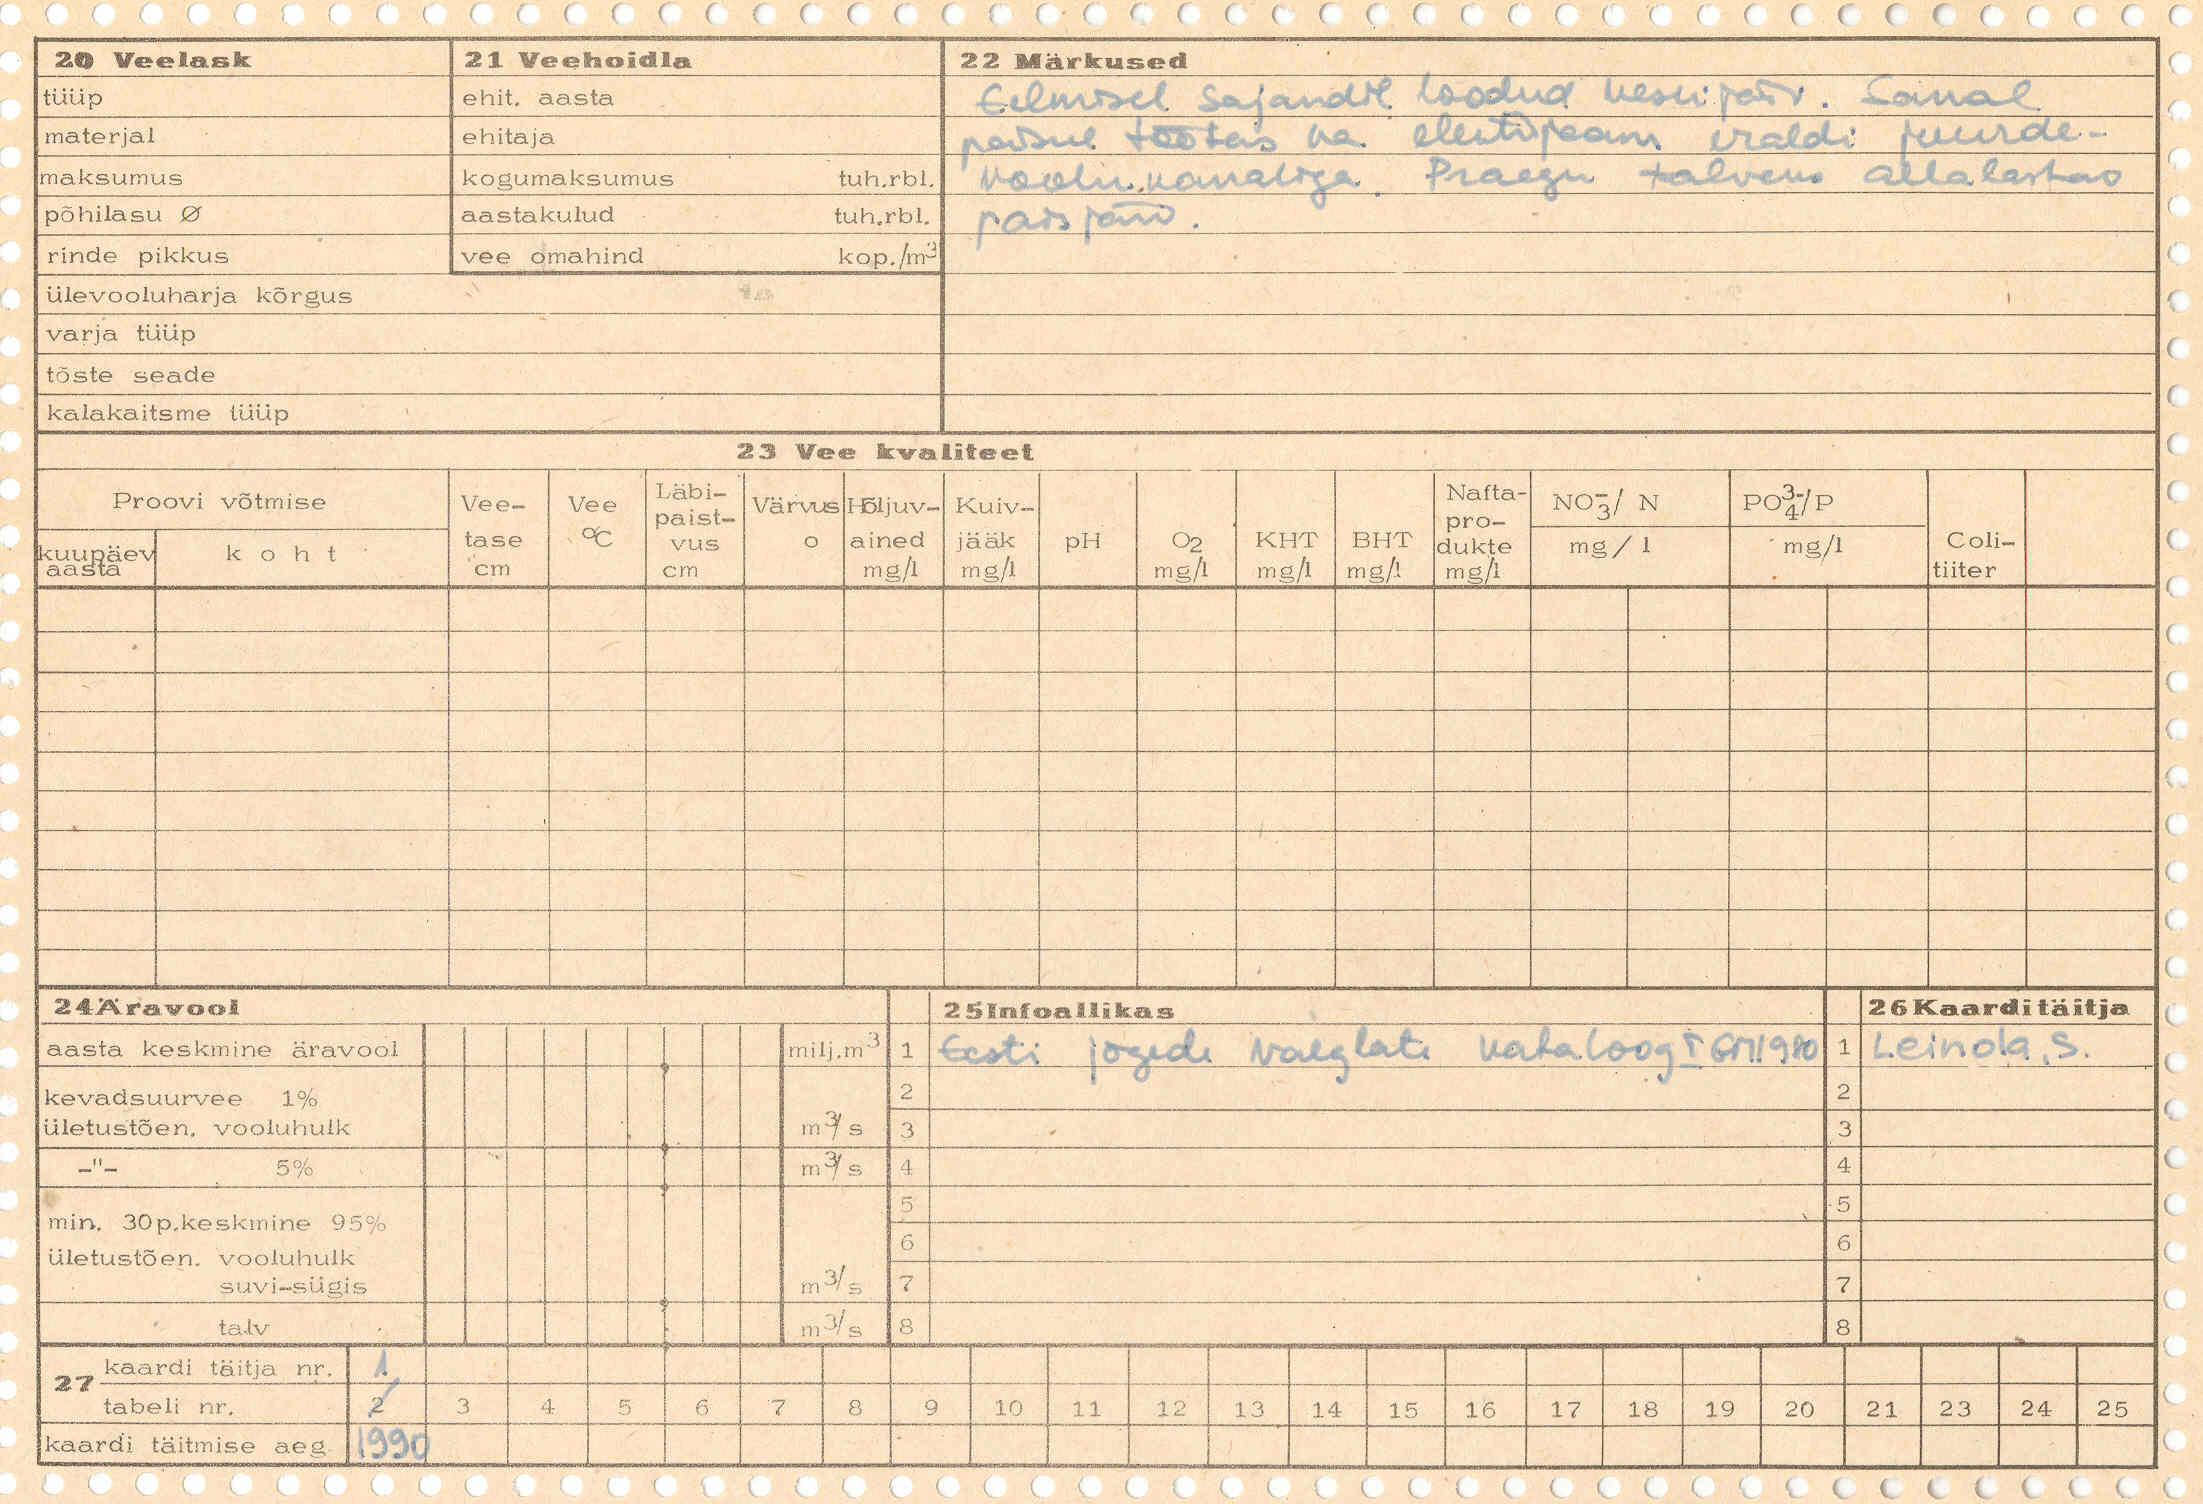 20 Veelask
tüüp
materjal
maksumus
põhilasu Ø
rinde pikkus
ülevooluharja kõrgus
varja tüüp
tõste seade
kalakaitsme tüüp
21 Veehoidla
ehit. aasta
ehitaja
kogumaksumus tuh.rbl.
aastakulud tuh.rbl.
vee omahind kop./m³
22 Märkused
Eelmisel sajandil loodud veskijärv. Samal
paisul töötas ka elektrijaam eraldi juurde-
voolu kanaliga. Praegu talveks allalastav
paisjärv.
23 Vee kvaliteet
Proovi võtmise
kuupäev aasta
koht
Vee-tase cm
Vee °C
Läbi-paist-vus cm
Värvus o
Hõljuv-ained mg/l
Kuiv-jääk mg/l
pH
O2 mg/l
KHT mg/l
BHT mg/l
Nafta-pro-dukte mg/l
NO3⁻/ N mg/l
PO4³⁻/P mg/l
Coli-tiiter
24 Äravool
aasta keskmine äravool milj.m³
kevadsuurvee 1%
ületustõen. vooluhulk m³/s
-"- 5% m³/s
min. 30p.keskmine 95%
ületustõen. vooluhulk
suvi-sügis m³/s
talv m³/s
25 Infoallikas
1 Eesti jõgede valglate kataloog I 1980
2
3
4
5
6
7
8
26 Kaardi täitja
1 Leinola, S.
2
3
4
5
6
7
8
27 kaardi täitja nr. 1.
tabeli nr. 2 3 4 5 6 7 8 9 10 11 12 13 14 15 16 17 18 19 20 21 23 24 25
kaardi täitmise aeg 1990